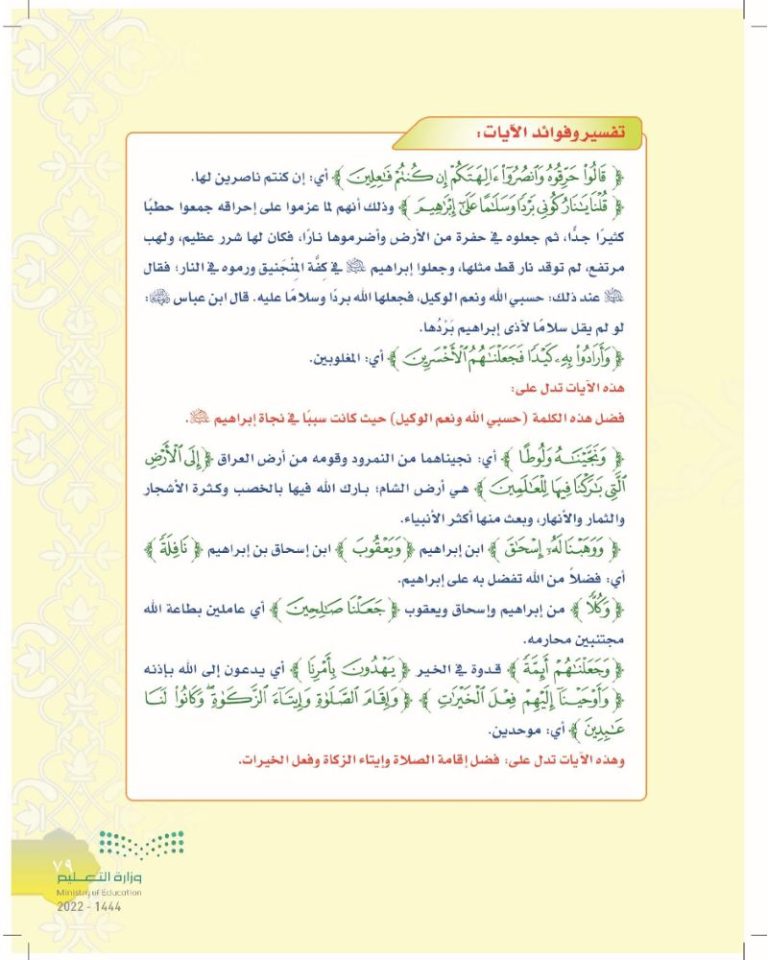 تفسير وفوائد الآيات:
﴿ قَالُوا حَرِّقُوهُ وَانصُرُوا ءَالِهَتَكُمْ إِن كُنتُمْ فَاعِلِينَ ﴾ أي: إن كنتم ناصرين لها.
﴿ قُلْنَا يَانَارُ كُونِي بَرْدًا وَسَلَامًا عَلَىٰ إِبْرَاهِيمَ ﴾ وذلك أنهم لما عزموا على إحراقه جمعوا حطبًا
كثيرًا جدًّا، ثم جعلوه في حفرة من الأرض وأضرموها نارًا، فكان لها شرر عظيم، ولهب
مرتفع، لم توقد نار قط مثلها، وجعلوا إبراهيم ﷺ في كفَّة المِنْجَنيق ورموه في النار؛ فقال
ﷺ عند ذلك: حسبي الله ونعم الوكيل، فجعلها الله بردًا وسلامًا عليه. قال ابن عباس :
لو لم يقل سلامًا لآذى إبراهيم بَرْدُها.
﴿ وَأَرَادُوا بِهِ كَيْدًا فَجَعَلْنَاهُمُ الْأَخْسَرِينَ ﴾ أي: المغلوبين.
هذه الآيات تدل على:
فضل هذه الكلمة (حسبي الله ونعم الوكيل) حيث كانت سببًا في نجاة إبراهيم ﷺ.
﴿ وَنَجَّيْنَاهُ وَلُوطًا ﴾ أي: نجيناهما من النمرود وقومه من أرض العراق ﴿ إِلَى الْأَرْضِ
الَّتِي بَارَكْنَا فِيهَا لِلْعَالَمِينَ ﴾ هي أرض الشام؛ بارك الله فيها بالخصب وكثرة الأشجار
والثمار والأنهار، وبعث منها أكثر الأنبياء.
﴿ وَوَهَبْنَا لَهُ إِسْحَقَ ﴾ ابن إبراهيم ﴿ وَيَعْقُوبَ ﴾ ابن إسحاق بن إبراهيم ﴿ نَافِلَةً ﴾
أي: فضلاً من الله تفضل به على إبراهيم.
﴿ وَكُلًّا ﴾ من إبراهيم وإسحاق ويعقوب ﴿ جَعَلْنَا صَالِحِينَ ﴾ أي عاملين بطاعة الله
مجتنبين محارمه.
﴿ وَجَعَلْنَاهُمْ أَئِمَّةً ﴾ قدوة في الخير ﴿ يَهْدُونَ بِأَمْرِنَا ﴾ أي يدعون إلى الله بإذنه
﴿ وَأَوْحَيْنَا إِلَيْهِمْ فِعْلَ الْخَيْرَاتِ ﴾ ﴿ وَإِقَامَ الصَّلَوٰةِ وَإِيتَاءَ الزَّكَوٰةِ وَكَانُوا لَنَا
عَابِدِينَ ﴾ أي: موحدين.
وهذه الآيات تدل على: فضل إقامة الصلاة وإيتاء الزكاة وفعل الخيرات.
٧٩
وزارة التعليم
Ministry of Education
2022 - 1444